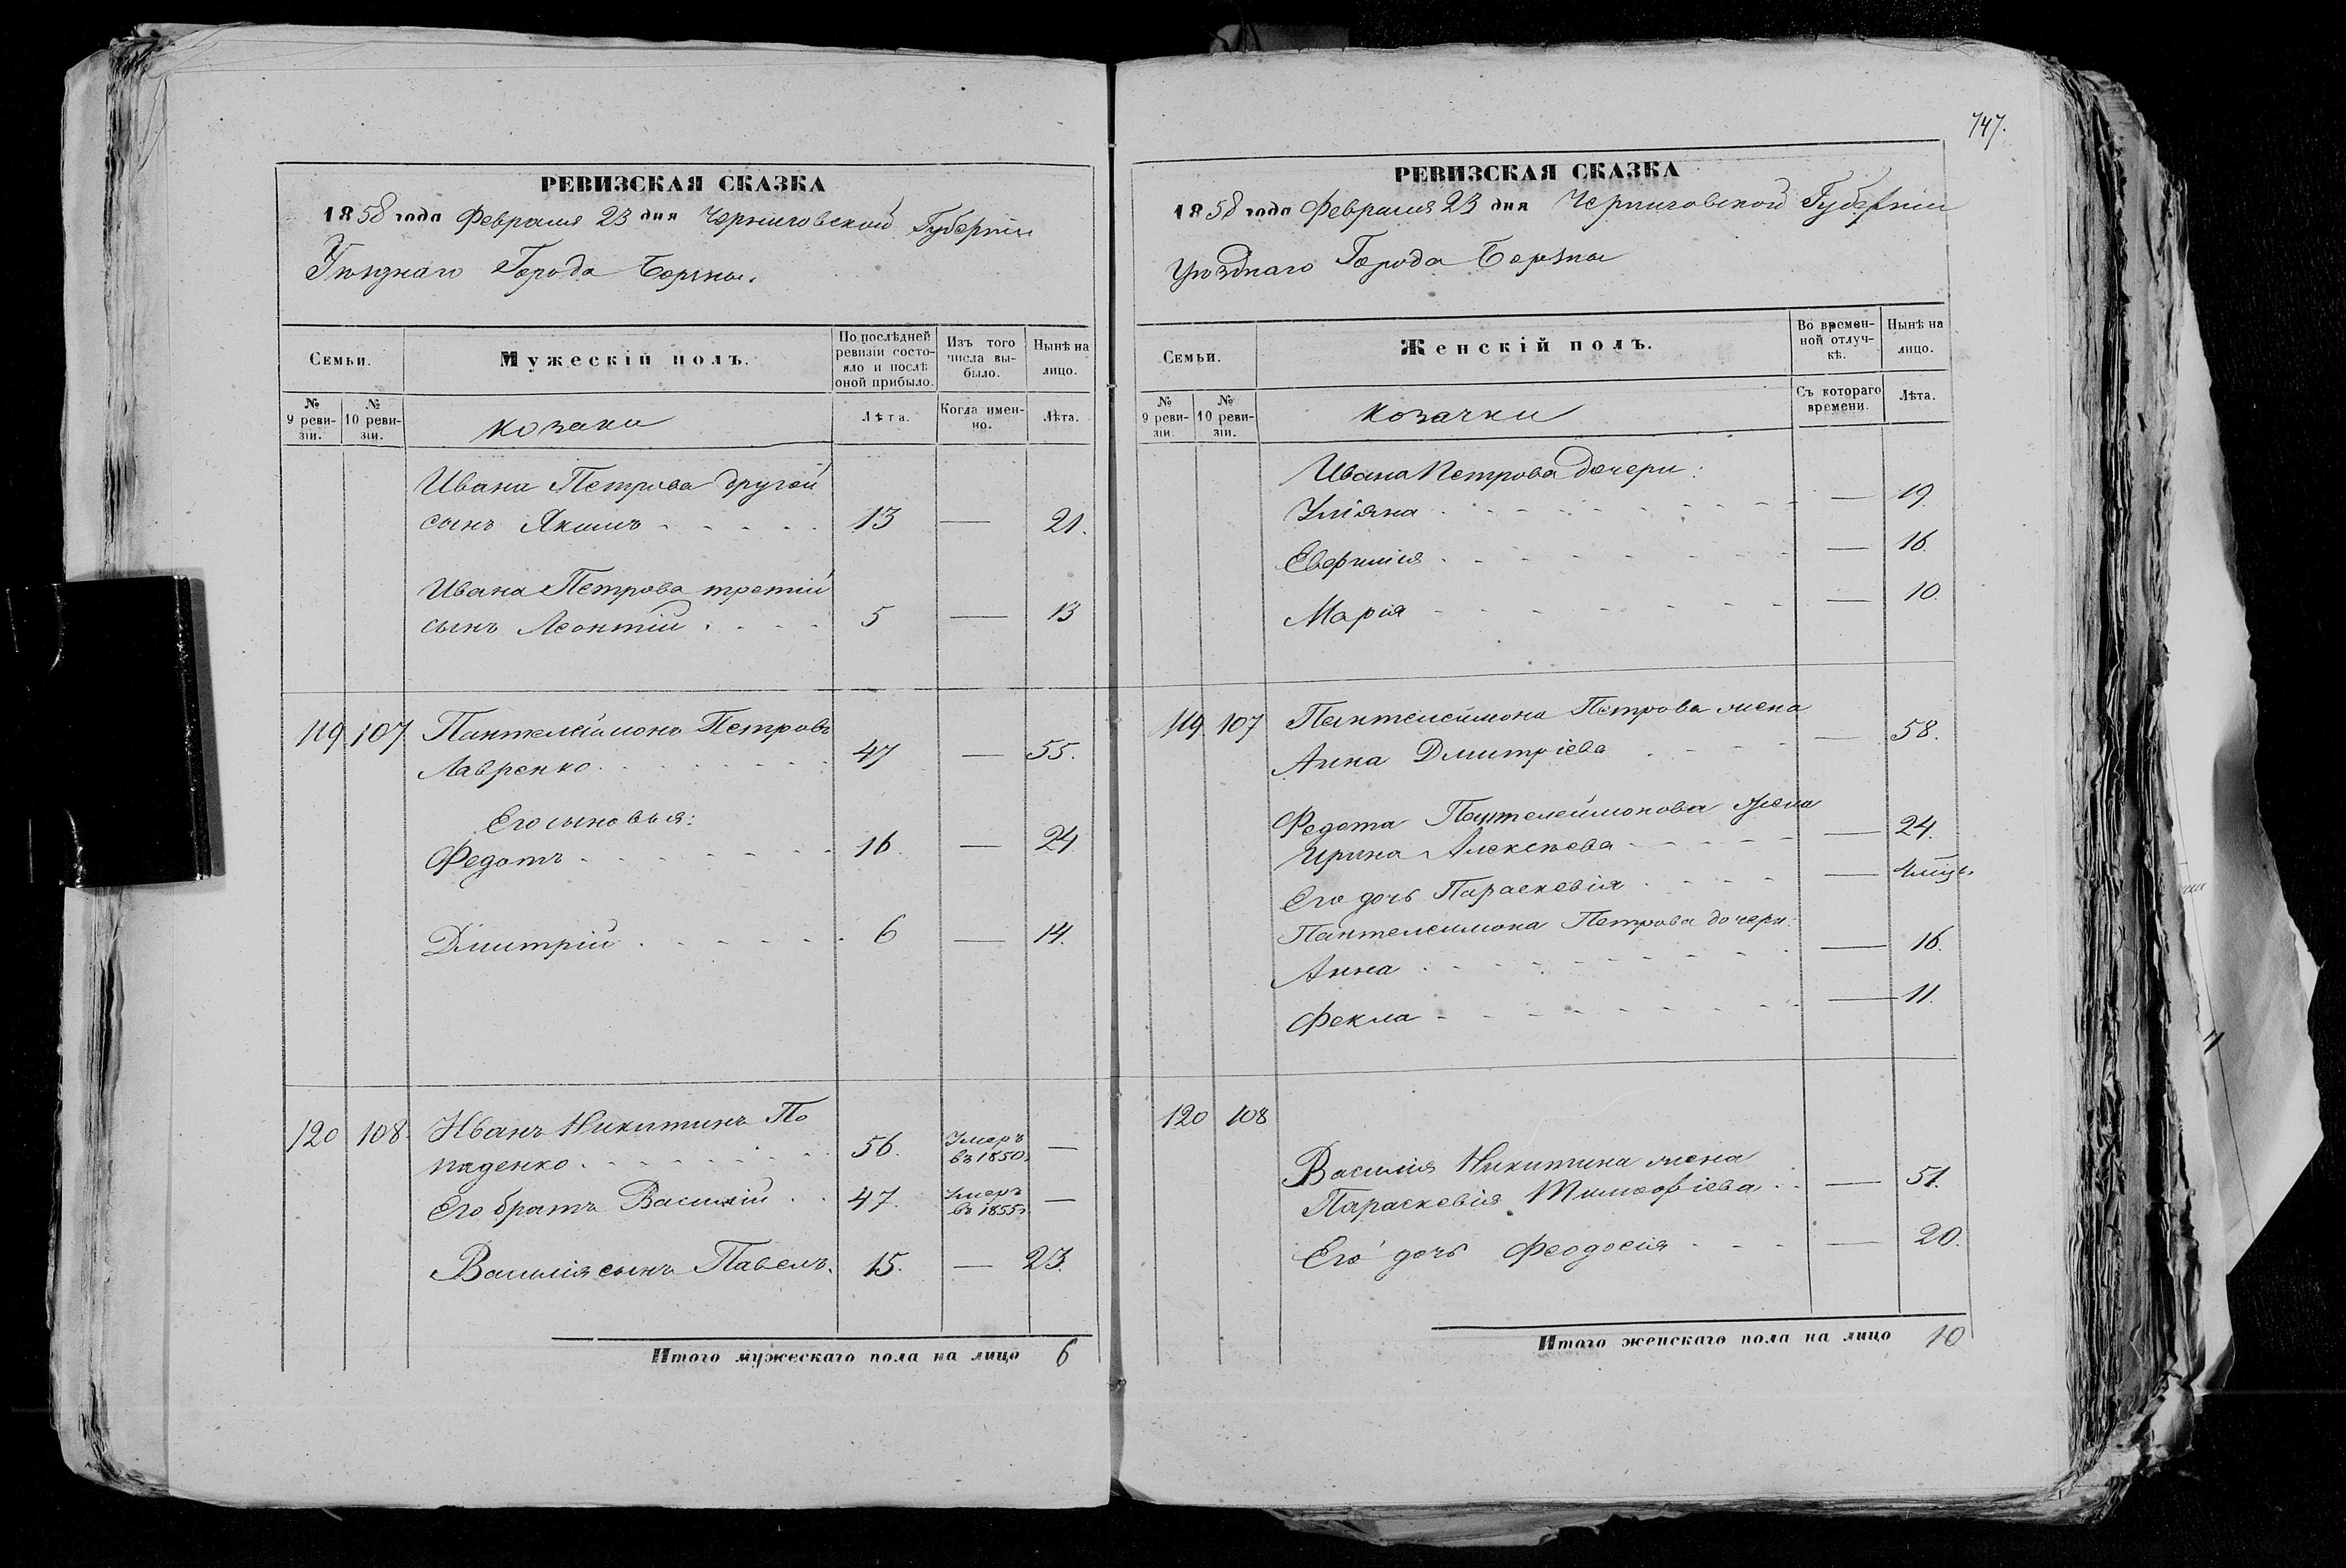 РЕВИЗСКАЯ СКАЗКА
1858 года Февраля 23 дня Черниговской Губерніи
Уѣзднаго Города Борзны.
Семьи.
Мужескій полъ.
По послѣдней ревизіи состояло и послѣ оной прибыло.
Изъ того числа выбыло.
Нынѣ на лицо.
№ 9 ревизіи.
№ 10 ревизіи.
козаки
Лѣта.
Когда именно.
Лѣта.
Ивана Петрова другой
сынъ Якимъ 13 — 21.
Ивана Петрова третій
сынъ Леонтій 5 — 13
119 107 Пантелеймонъ Петровъ
Лавренко 47 — 55.
Его сыновья:
Федотъ 16. — 24
Дмитрій 6 — 14.
120 108. Иванъ Никитинъ По
паденко 56. Умеръ въ 1850 —
Его братъ Василій 47. Умеръ въ 1855 г. —
Василія сынъ Павелъ. 15. — 23.
Итого мужескаго пола на лицо 6
747.
РЕВИЗСКАЯ СКАЗКА
1858 года Февраля 23 дня Черниговской Губерніи
Уѣзднаго Города Борзны
Семьи.
Женскій полъ.
Во временной отлучкѣ.
Нынѣ на лицо.
№ 9 ревизіи
№ 10 ревизіи.
козачки
Съ котораго времени.
Лѣта.
Ивана Петрова дочери:
Уліяна — 19.
Евфимія — 16.
Марія — 10.
119 107 Пантелеймона Петрова жена
Анна Дмитріева — 58.
Федота Пантелеймонова жена
Ирина Алексѣева — 24.
Его дочь Параскевія — 4 мѣс.
Пантелеимона Петрова дочери:
Анна — 16.
Фекла — 11.
120 108
Василія Никитина жена
Параскевія Тимофіева — 51.
Его дочь Феодосія — 20.
Итого женскаго пола на лицо 10